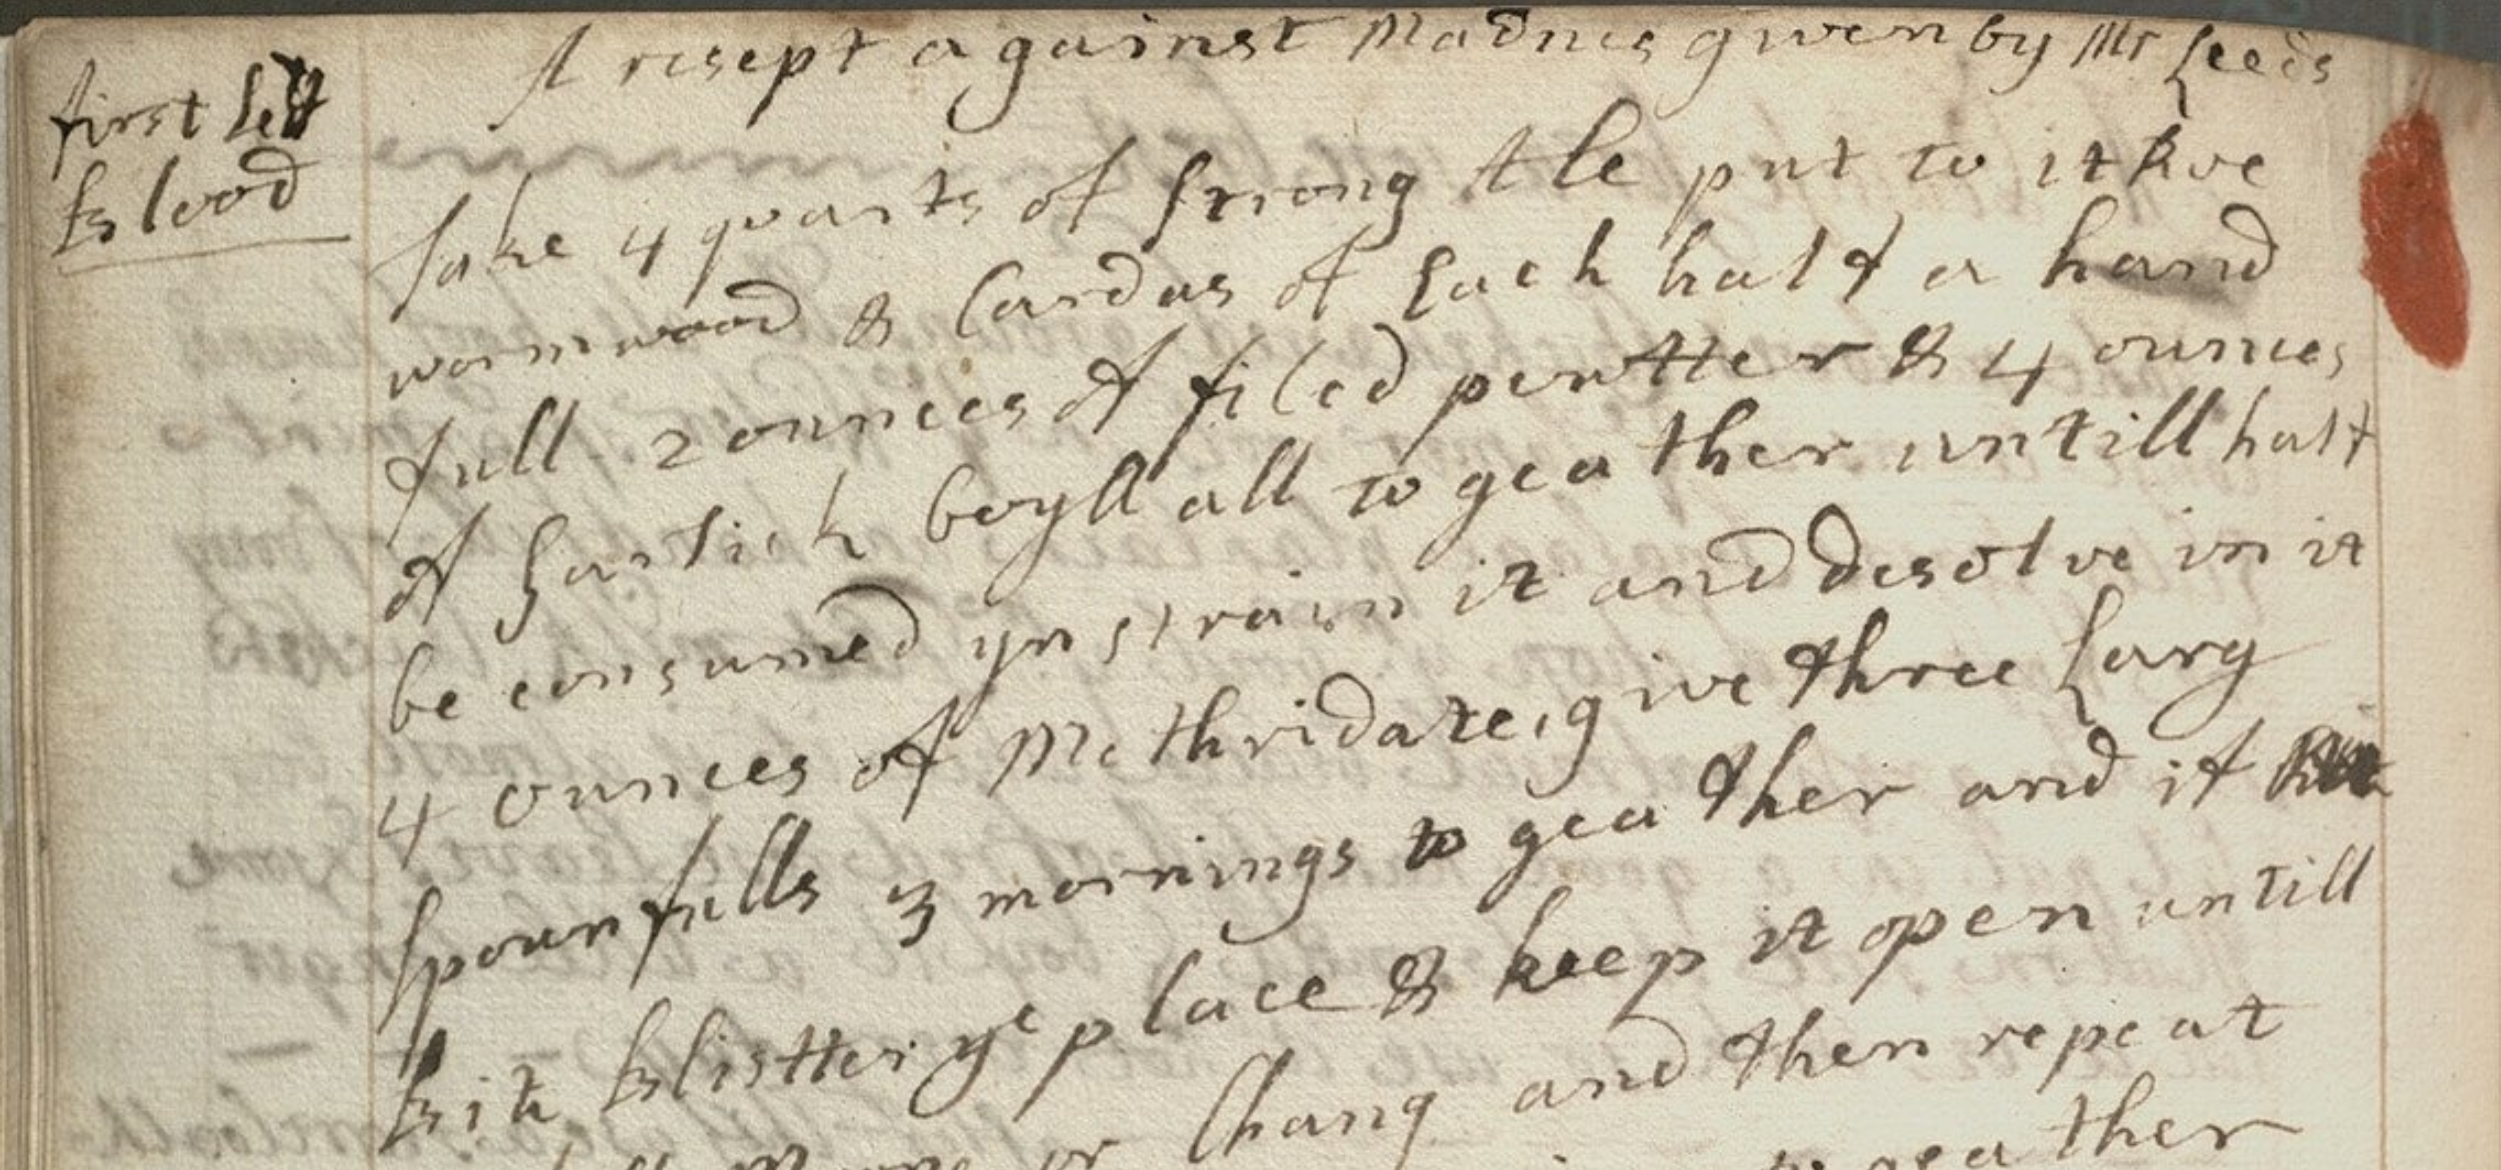 A resept against Madnes given by Mr Leeds
first lett
blood
Take 4 quarts of strong Ale put to it Rue
wormwood & Cardus of Each half a hand
full 2 ounces of filed pewtter & 4 ounces
of Garlick boyll all to geather untill half
be consumed yn strain it and desolve in it
4 ounces of Methridate, give three Larg
spounfulls 3 mornings to geather and if
bit blistter ye place & keep it open untill
or Chang and then repeat
to geather